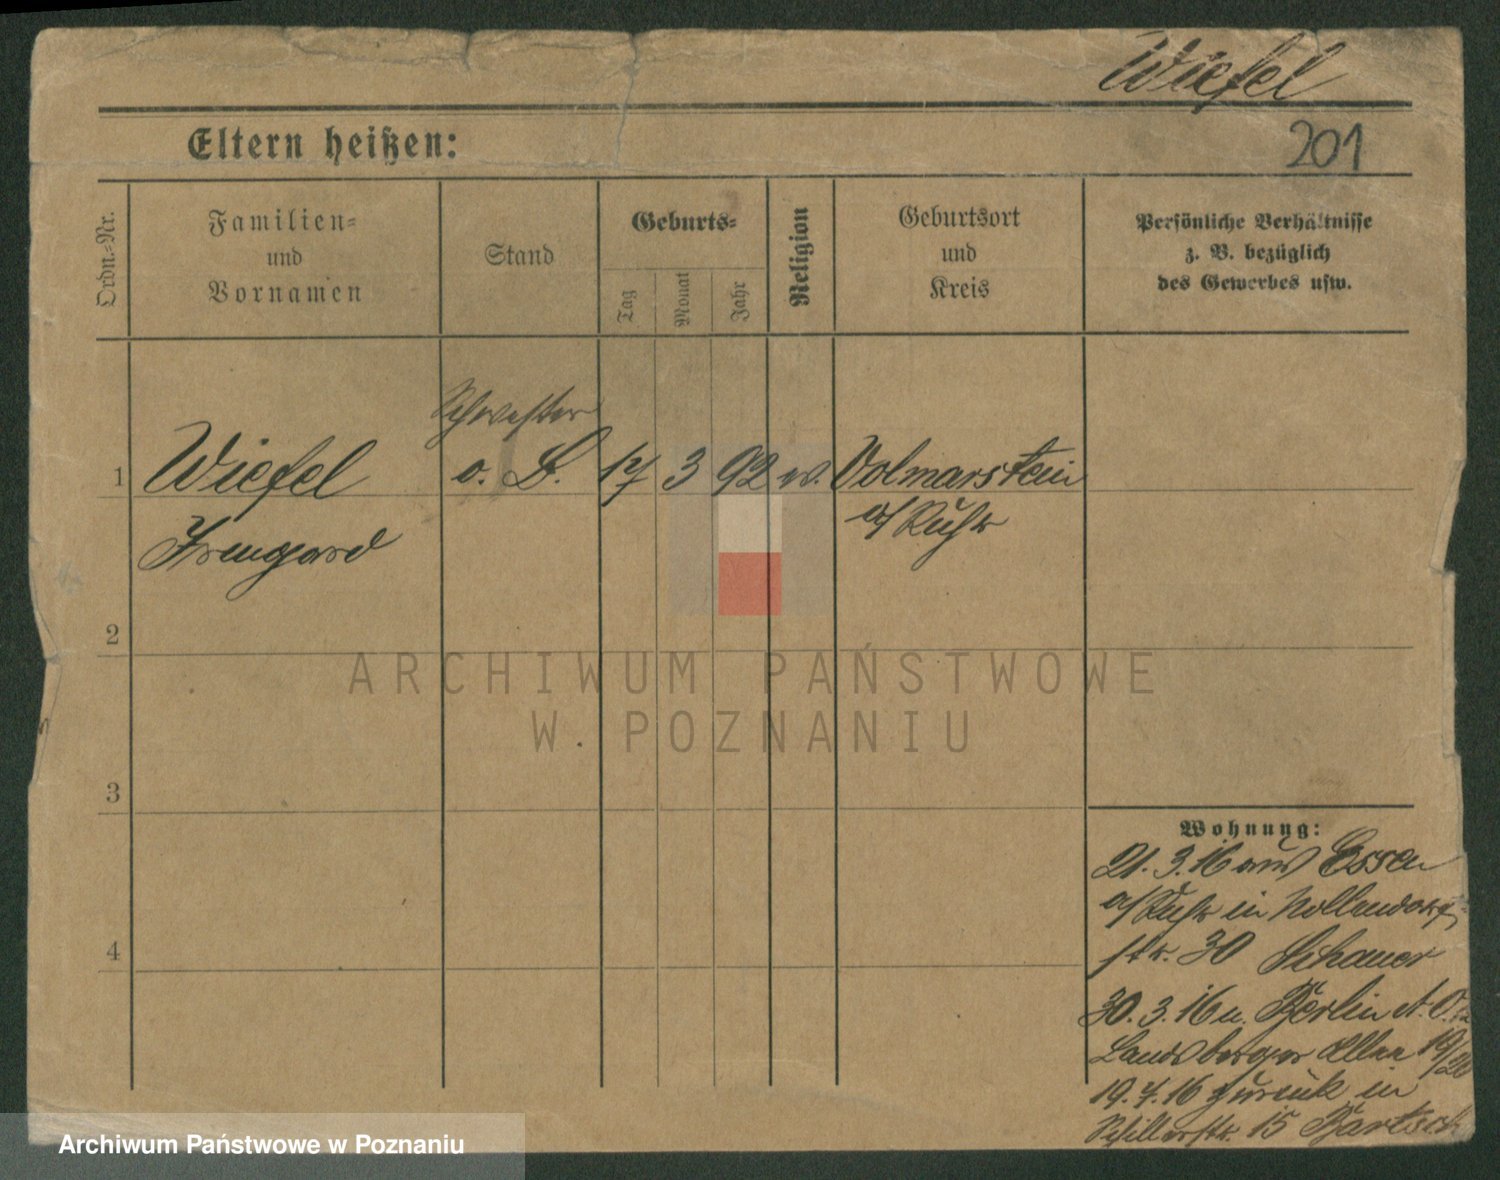 Wiefel
Eltern heißen:
201
Ordn.-Nr.
Familien-
und
Vornamen
Stand
Geburts-
Tag
Monat
Jahr
Religion
Geburtsort
und
Kreis
Persönliche Verhältnisse
z. B. bezüglich
des Gewerbes usw.
Schwester
1 Wiefel o. B. 17 3 92 ev. Volmarstein
Irmgard a/Ruhr
2
ARCHIWUM PAŃSTWOWE
W POZNANIU
3
Wohnung:
21.3.16 aus Essen
a/Ruhr in Nollendorf
str. 30 Schauer
4
30.3.16 n. Berlin
Landsberger Allee 19/20
19.4.16 zurück in
Schillerstr. 15 Bartsch
Archiwum Państwowe w Poznaniu